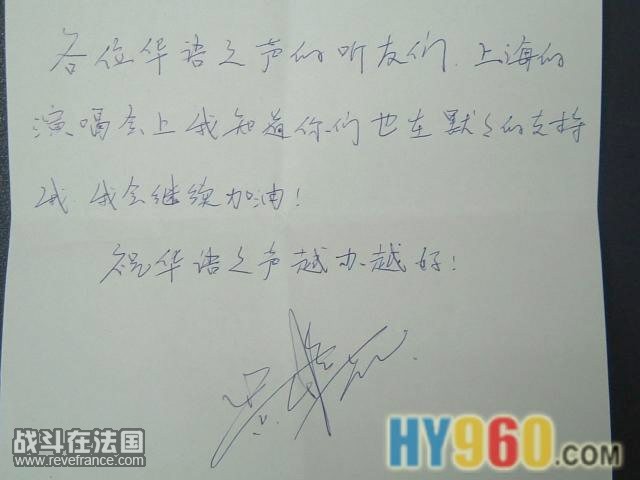 各位华语之声的听友们.上海的
演唱会上我知道你们也在默々的支持
我.我会继续加油!
祝华语之声越办越好!
战斗在法国
www.revefrance.com
HY960.com